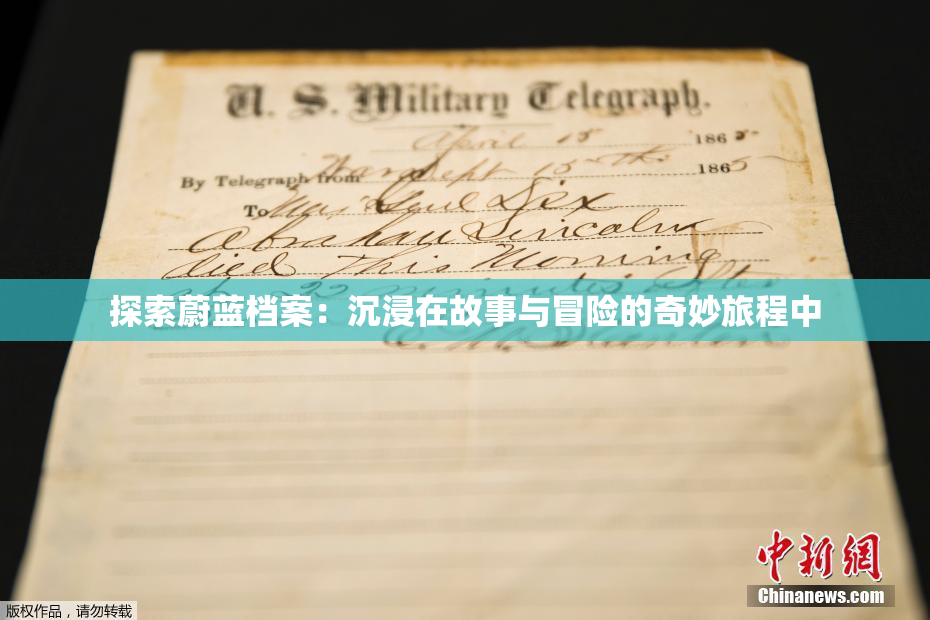 U. S. Military Telegraph.
April 15 1865
By Telegraph from War Dept 15th 1865
To Maj Genl Dix
Abraham Lincoln
died This Morning
22 minutes after
探索蔚蓝档案：沉浸在故事与冒险的奇妙旅程中
中新网
Chinanews.com
版权作品，请勿转载